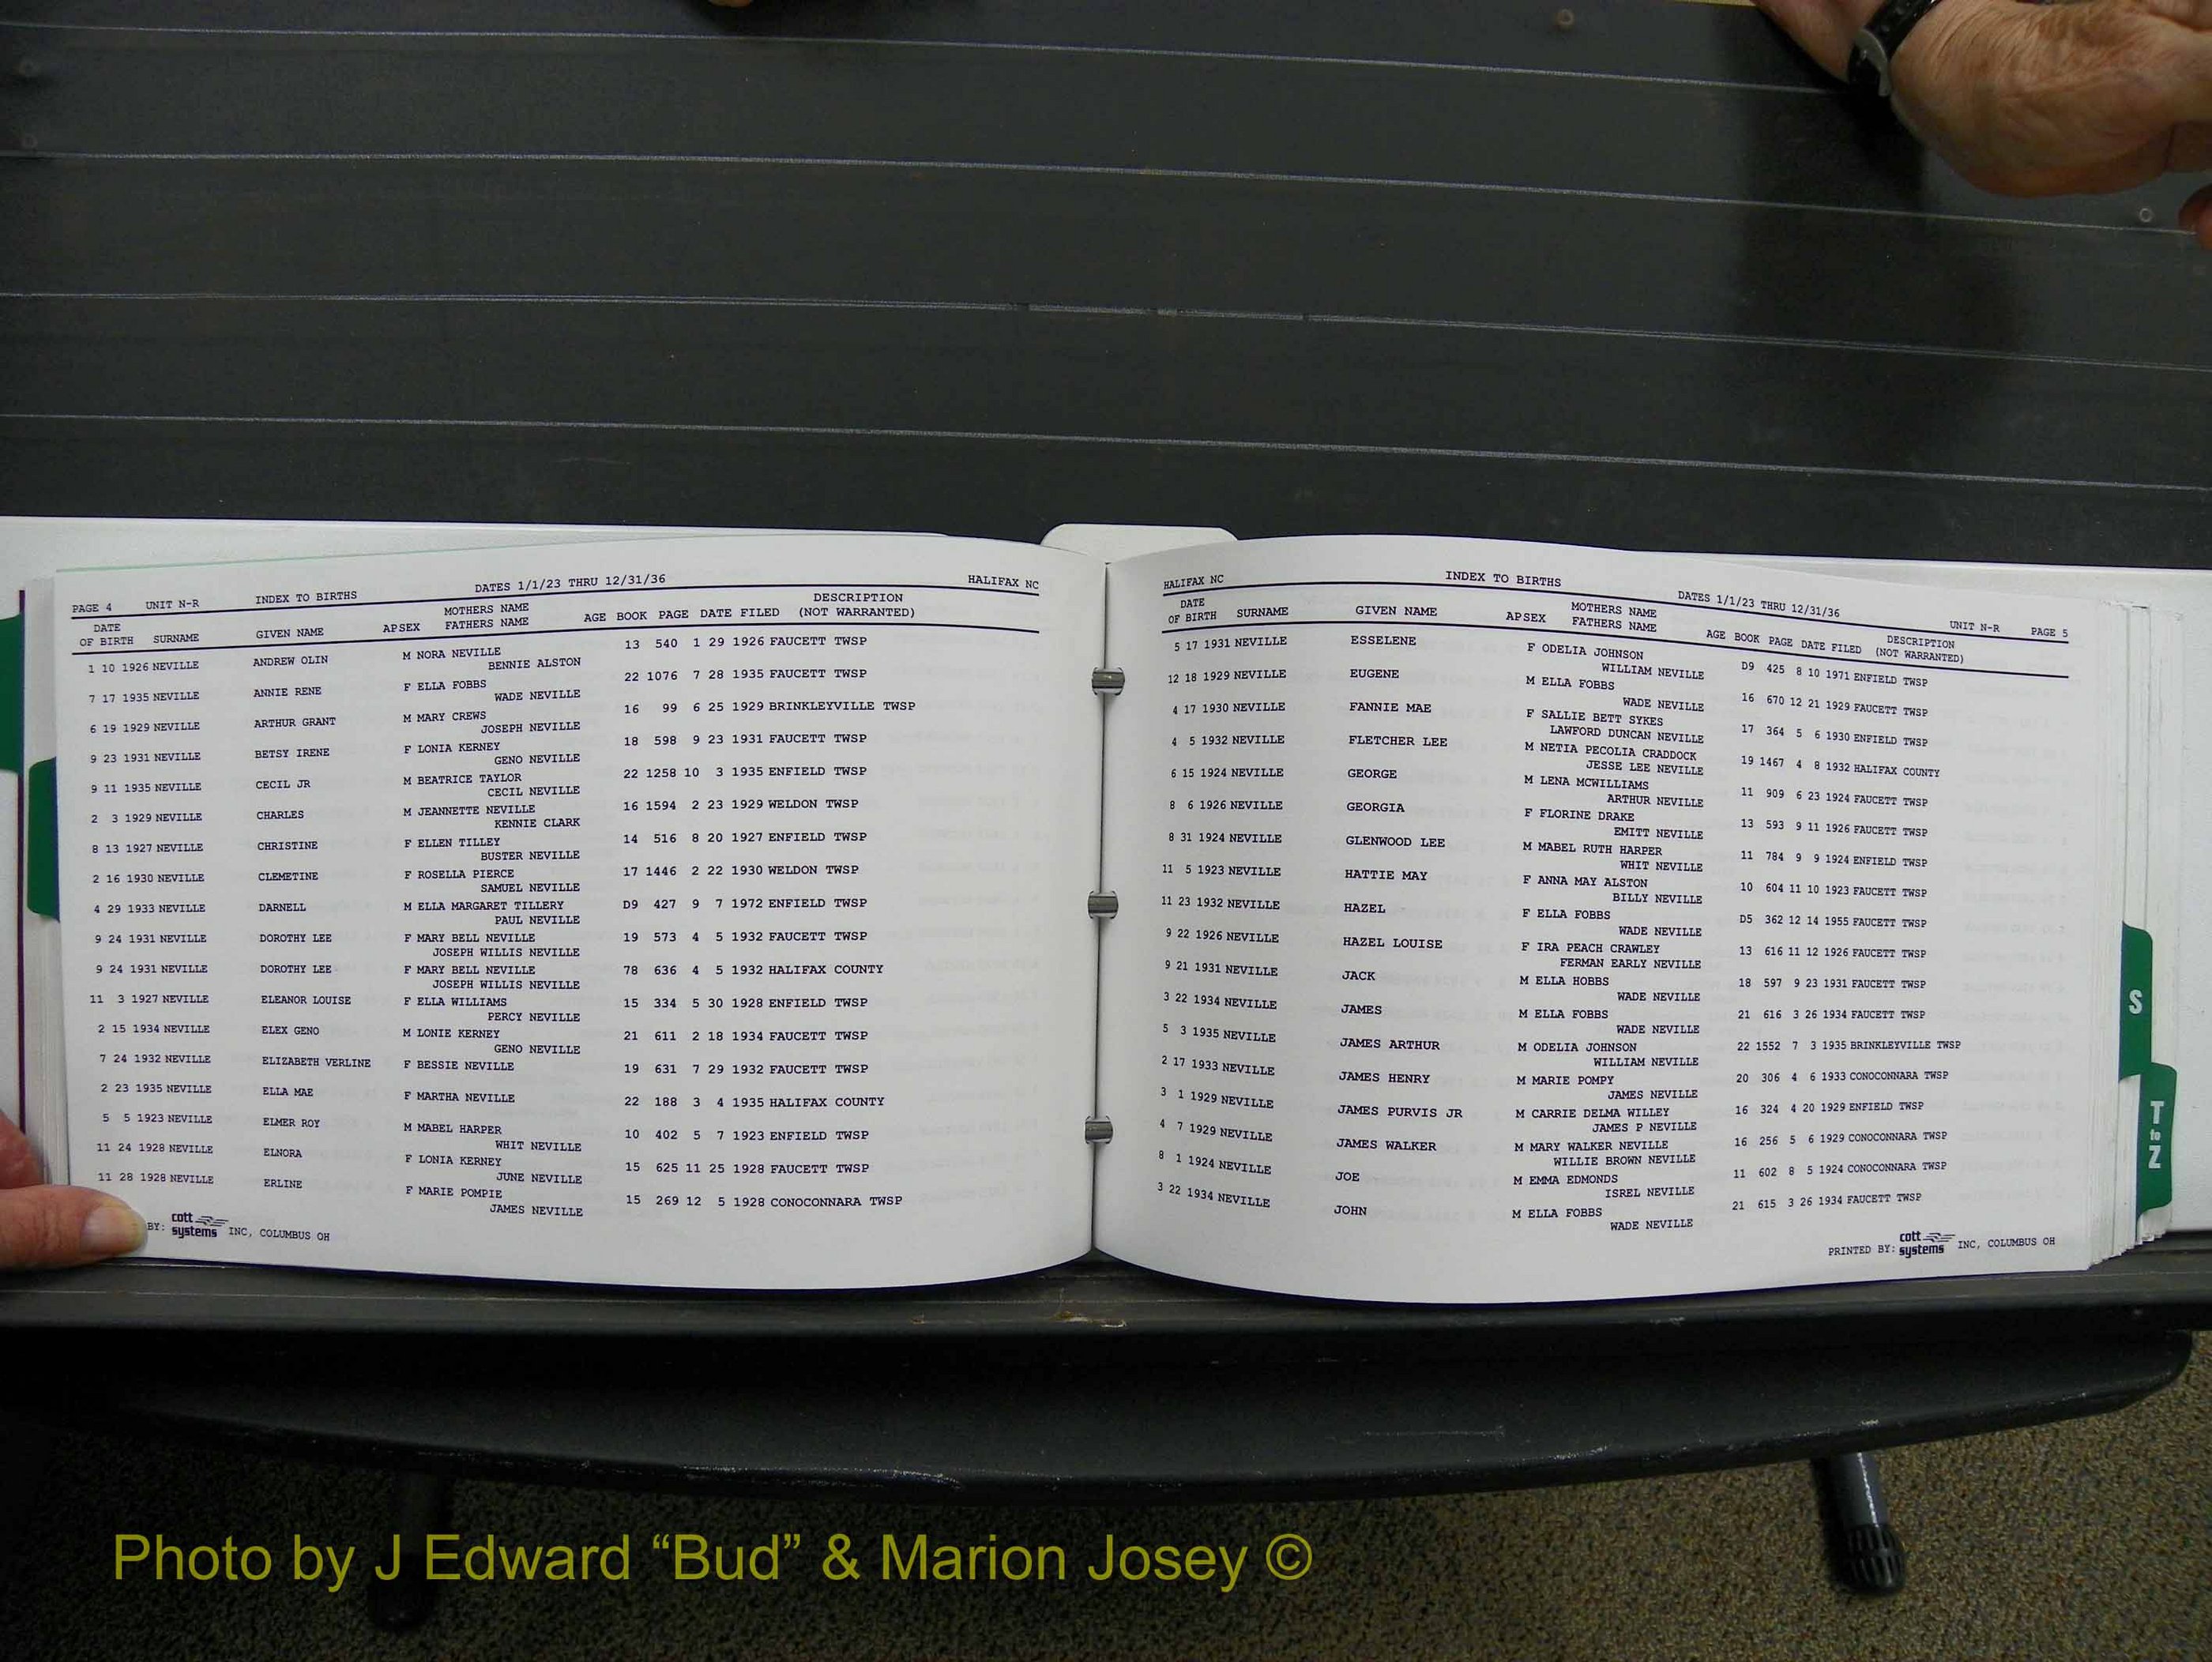 PAGE 4 UNIT N-R INDEX TO BIRTHS DATES 1/1/23 THRU 12/31/36 HALIFAX NC
DATE OF BIRTH SURNAME GIVEN NAME AP SEX MOTHERS NAME FATHERS NAME AGE BOOK PAGE DATE FILED DESCRIPTION (NOT WARRANTED)
1 10 1926 NEVILLE ANDREW OLIN M NORA NEVILLE 13 540 1 29 1926 FAUCETT TWSP
BENNIE ALSTON
7 17 1935 NEVILLE ANNIE RENE F ELLA FOBBS 22 1076 7 28 1935 FAUCETT TWSP
WADE NEVILLE
6 19 1929 NEVILLE ARTHUR GRANT M MARY CREWS 16 99 6 25 1929 BRINKLEYVILLE TWSP
JOSEPH NEVILLE
9 23 1931 NEVILLE BETSY IRENE F LONIA KERNEY 18 598 9 23 1931 FAUCETT TWSP
GENO NEVILLE
9 11 1935 NEVILLE CECIL JR M BEATRICE TAYLOR 22 1258 10 3 1935 ENFIELD TWSP
CECIL NEVILLE
2 3 1929 NEVILLE CHARLES M JEANNETTE NEVILLE 16 1594 2 23 1929 WELDON TWSP
KENNIE CLARK
8 13 1927 NEVILLE CHRISTINE F ELLEN TILLEY 14 516 8 20 1927 ENFIELD TWSP
BUSTER NEVILLE
2 16 1930 NEVILLE CLEMETINE F ROSELLA PIERCE 17 1446 2 22 1930 WELDON TWSP
SAMUEL NEVILLE
4 29 1933 NEVILLE DARNELL M ELLA MARGARET TILLERY D9 427 9 7 1972 ENFIELD TWSP
PAUL NEVILLE
9 24 1931 NEVILLE DOROTHY LEE F MARY BELL NEVILLE 19 573 4 5 1932 FAUCETT TWSP
JOSEPH WILLIS NEVILLE
9 24 1931 NEVILLE DOROTHY LEE F MARY BELL NEVILLE 78 636 4 5 1932 HALIFAX COUNTY
JOSEPH WILLIS NEVILLE
11 3 1927 NEVILLE ELEANOR LOUISE F ELLA WILLIAMS 15 334 5 30 1928 ENFIELD TWSP
PERCY NEVILLE
2 15 1934 NEVILLE ELEX GENO M LONIE KERNEY 21 611 2 18 1934 FAUCETT TWSP
GENO NEVILLE
7 24 1932 NEVILLE ELIZABETH VERLINE F BESSIE NEVILLE 19 631 7 29 1932 FAUCETT TWSP
2 23 1935 NEVILLE ELLA MAE F MARTHA NEVILLE 22 188 3 4 1935 HALIFAX COUNTY
5 5 1923 NEVILLE ELMER ROY M MABEL HARPER 10 402 5 7 1923 ENFIELD TWSP
WHIT NEVILLE
11 24 1928 NEVILLE ELNORA F LONIA KERNEY 15 625 11 25 1928 FAUCETT TWSP
JUNE NEVILLE
11 28 1928 NEVILLE ERLINE F MARIE POMPIE 15 269 12 5 1928 CONOCONNARA TWSP
JAMES NEVILLE
BY: cott systems INC, COLUMBUS OH
HALIFAX NC INDEX TO BIRTHS DATES 1/1/23 THRU 12/31/36 UNIT N-R PAGE 5
DATE OF BIRTH SURNAME GIVEN NAME AP SEX MOTHERS NAME FATHERS NAME AGE BOOK PAGE DATE FILED DESCRIPTION (NOT WARRANTED)
5 17 1931 NEVILLE ESSELENE F ODELIA JOHNSON D9 425 8 10 1971 ENFIELD TWSP
WILLIAM NEVILLE
12 18 1929 NEVILLE EUGENE M ELLA FOBBS 16 670 12 21 1929 FAUCETT TWSP
WADE NEVILLE
4 17 1930 NEVILLE FANNIE MAE F SALLIE BETT SYKES 17 364 5 6 1930 ENFIELD TWSP
LAWFORD DUNCAN NEVILLE
4 5 1932 NEVILLE FLETCHER LEE M NETIA PECOLIA CRADDOCK 19 1467 4 8 1932 HALIFAX COUNTY
JESSE LEE NEVILLE
6 15 1924 NEVILLE GEORGE M LENA MCWILLIAMS 11 909 6 23 1924 FAUCETT TWSP
ARTHUR NEVILLE
8 6 1926 NEVILLE GEORGIA F FLORINE DRAKE 13 593 9 11 1926 FAUCETT TWSP
EMITT NEVILLE
8 31 1924 NEVILLE GLENWOOD LEE M MABEL RUTH HARPER 11 784 9 9 1924 ENFIELD TWSP
WHIT NEVILLE
11 5 1923 NEVILLE HATTIE MAY F ANNA MAY ALSTON 10 604 11 10 1923 FAUCETT TWSP
BILLY NEVILLE
11 23 1932 NEVILLE HAZEL F ELLA FOBBS D5 362 12 14 1955 FAUCETT TWSP
WADE NEVILLE
9 22 1926 NEVILLE HAZEL LOUISE F IRA PEACH CRAWLEY 13 616 11 12 1926 FAUCETT TWSP
FERMAN EARLY NEVILLE
9 21 1931 NEVILLE JACK M ELLA HOBBS 18 597 9 23 1931 FAUCETT TWSP
WADE NEVILLE
3 22 1934 NEVILLE JAMES M ELLA FOBBS 21 616 3 26 1934 FAUCETT TWSP
WADE NEVILLE
5 3 1935 NEVILLE JAMES ARTHUR M ODELIA JOHNSON 22 1552 7 3 1935 BRINKLEYVILLE TWSP
WILLIAM NEVILLE
2 17 1933 NEVILLE JAMES HENRY M MARIE POMPY 20 306 4 6 1933 CONOCONNARA TWSP
JAMES NEVILLE
3 1 1929 NEVILLE JAMES PURVIS JR M CARRIE DELMA WILLEY 16 324 4 20 1929 ENFIELD TWSP
JAMES P NEVILLE
4 7 1929 NEVILLE JAMES WALKER M MARY WALKER NEVILLE 16 256 5 6 1929 CONOCONNARA TWSP
WILLIE BROWN NEVILLE
8 1 1924 NEVILLE JOE M EMMA EDMONDS 11 602 8 5 1924 CONOCONNARA TWSP
ISREL NEVILLE
3 22 1934 NEVILLE JOHN M ELLA FOBBS 21 615 3 26 1934 FAUCETT TWSP
WADE NEVILLE
PRINTED BY: cott systems INC, COLUMBUS OH
S
T to Z
Photo by J Edward “Bud” & Marion Josey ©